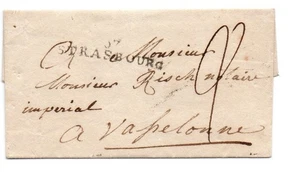 67
STRASBOURG
A Monsieur
Monsieur Risch notaire
imperial
a Vasselonne